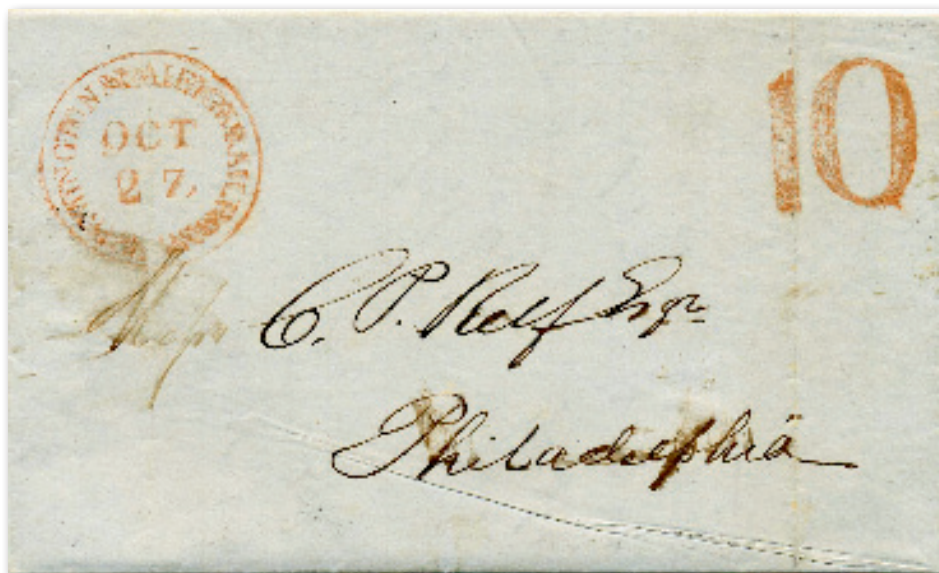 WILMINGTON & RALEIGH RAILROAD
OCT
27
10
C. P. Relf Esqr
Philadelphia